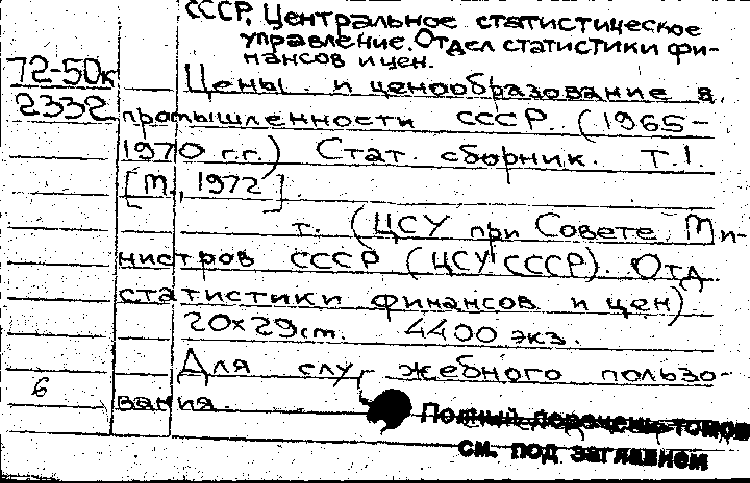 СССР. Центральное статистическое
управление. Отдел статистики фи-
нансов и цен.
72-50к Цены и ценообразование в
2332 промышленности СССР. (1965-
1970 г.г.) Стат. сборник. Т.1.
[М., 1972].
т. (ЦСУ при Совете Ми-
нистров СССР (ЦСУ СССР). Отд
статистики финансов и цен)
20x29см. 4400 экз.
Для служебного пользо-
6 вания.
Полный перечень томов
см. под заглавием